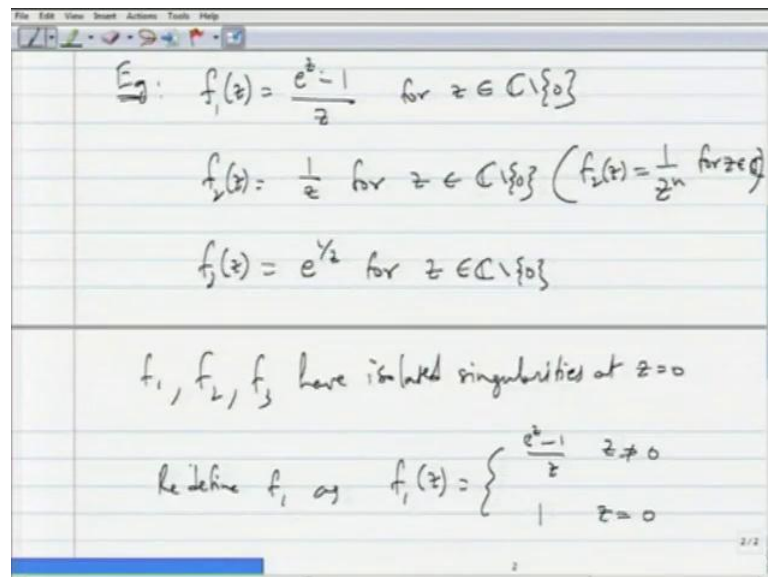 File Edit View Insert Actions Tools Help
Eg: f₁(z) = (e^z - 1)/z for z ∈ ℂ\{0}
f₂(z) = 1/z for z ∈ ℂ\{0} (f₂(z) = 1/z^n for z ∈ ℂ)
f₃(z) = e^{1/z} for z ∈ ℂ\{0}
f₁, f₂, f₃ have isolated singularities at z = 0
Redefine f₁ as f₁(z) = { (e^z - 1)/z z ≠ 0
1 z = 0
2/2
2